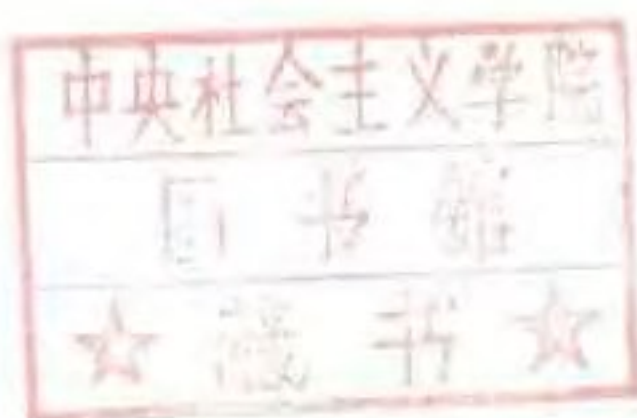 中央社会主义学院
图书馆
☆ 藏书 ☆